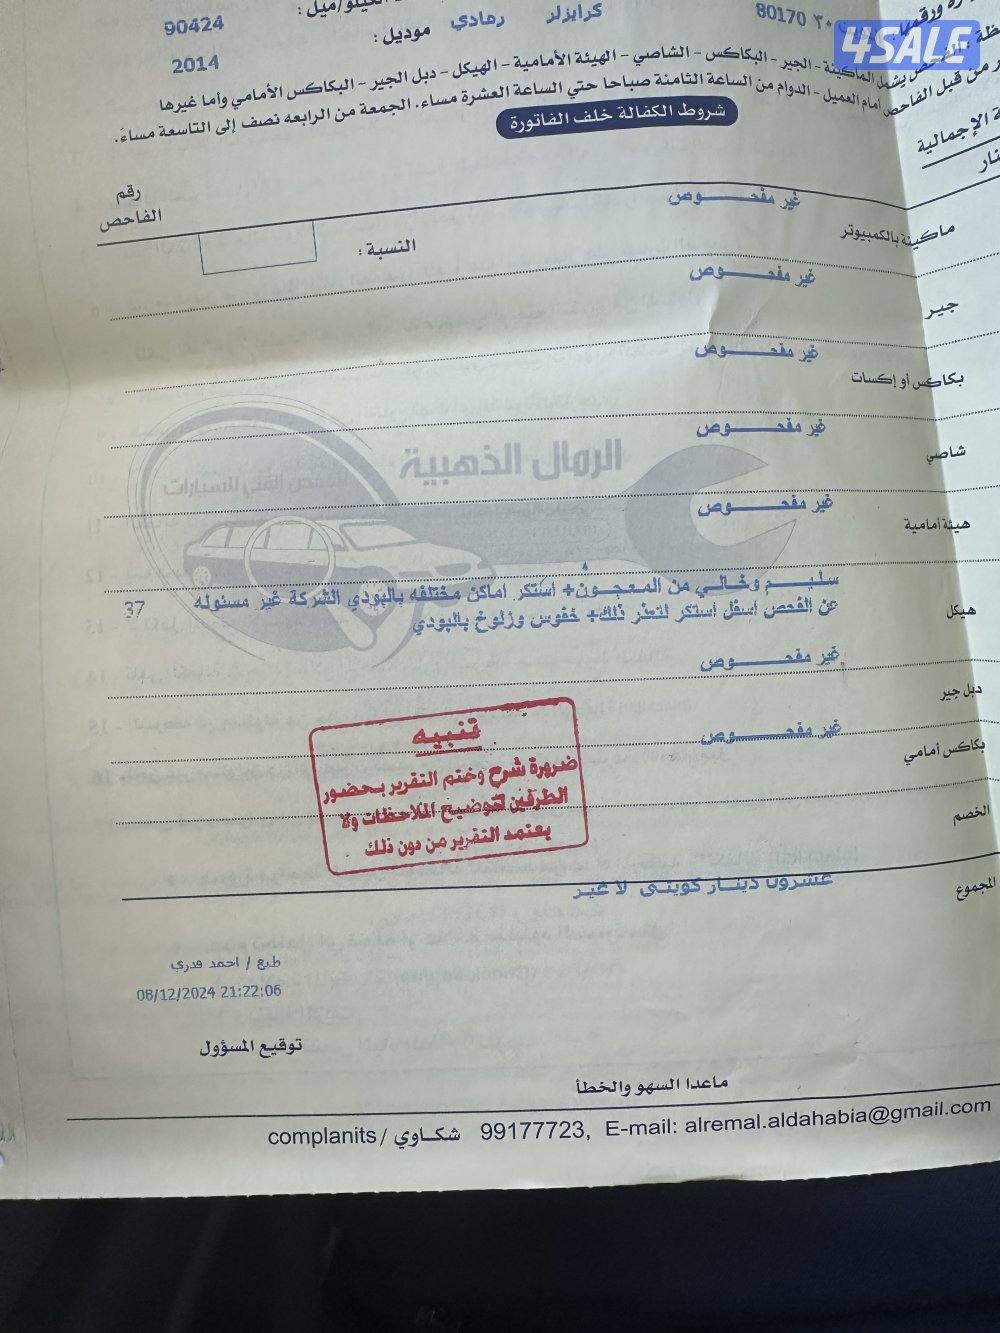 4SALE
الكيلو/ميل :
90424
كرايزلر رمادي
80170 ٣٠
موديل :
2014
الفحص يشمل الماكينة - الجير - البكاكس - الشاصي - الهيئة الأمامية - الهيكل - دبل الجير - البكاكس الأمامي وأما غيرها
من قبل الفاحص أمام العميل - الدوام من الساعة الثامنة صباحا حتي الساعة العشرة مساء. الجمعة من الرابعه نصف إلى التاسعة مساءً.
شروط الكفالة خلف الفاتورة
الإجمالية
رقم
الفاحص
غير مفحــوص
ماكينة بالكمبيوتر
النسبة :
غير مفحــوص
جير
غير مفحــوص
بكاكس أو إكسات
غير مفحــوص
شاصي
الرمال الذهبية
للفحص الفني للسيارات
غير مفحــوص
هيئة أمامية
سليــم وخالي من المعجون+ استكر اماكن مختلفه بالبودي الشركة غير مسئوله
37
عن الفحص اسفل استكر لتعذر ذلك+ خفوس وزلوخ بالبودي
هيكل
غير مفحــوص
دبل جير
غير مفحــوص
بكاكس أمامي
تنبيه
ضرورة شرح وختم التقرير بحضور
الطرفين لتوضيح الملاحظات ولا
يعتمد التقرير من دون ذلك
الخصم
المجموع
عشرون دينــار كويتى لا غير
طبع / احمد قدري
08/12/2024 21:22:06
توقيع المسؤول
ماعدا السهو والخطأ
complanits / شكـاوي 99177723, E-mail: alremal.aldahabia@gmail.com